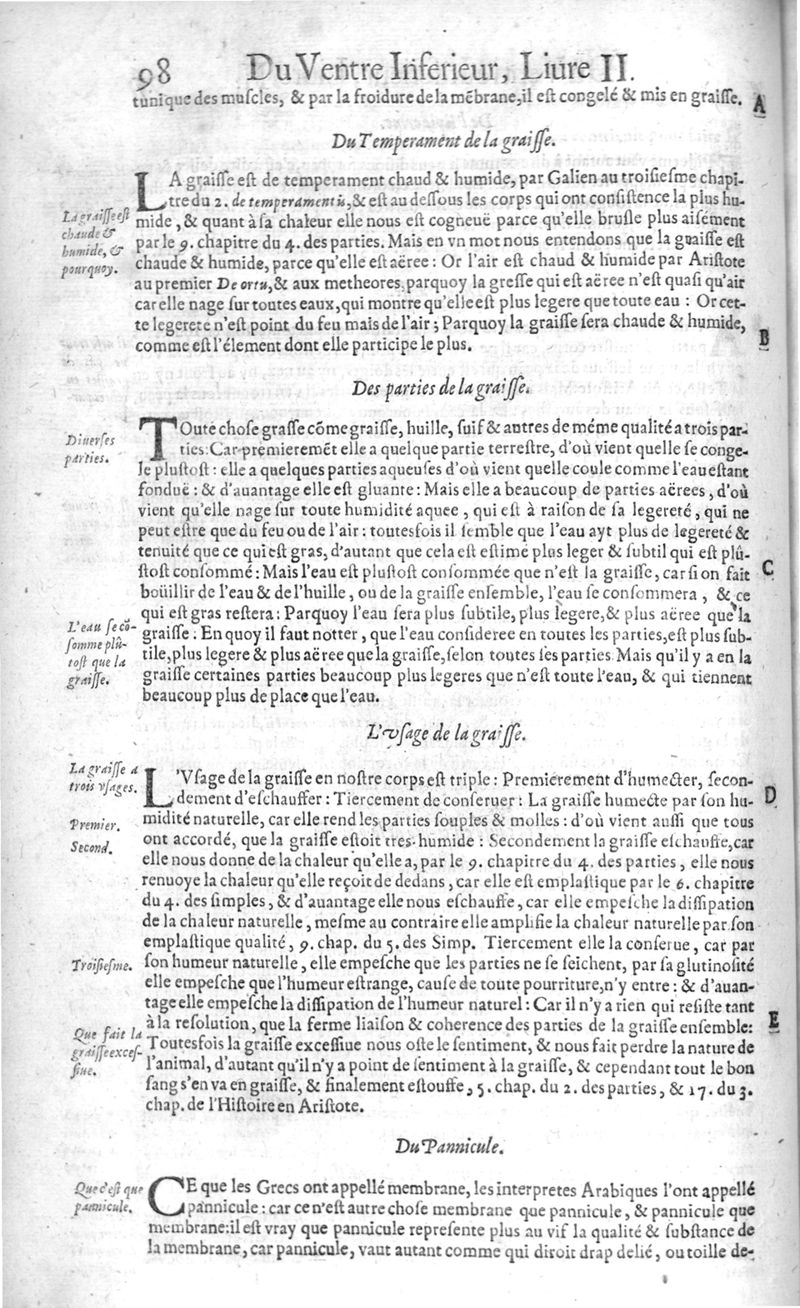 98 Du Ventre Inferieur, Liure II.
tunique des muſcles, & par la froidure de la mẽbrane, il est congelé & mis en graiſſe. A
Du Temperament de la graiſſe.
LA graiſſe est de temperament chaud & humide, par Galien au troiſieſme chapi-
tre du 2. de temperamentis, & est au deſſous les corps qui ont conſiſtence la plus hu-
La graiſſe est
chaude &
humide, &
pourquoy.
mide, & quant à ſa chaleur elle nous est cogneuë parce qu'elle bruſle plus aiſément
par le 9. chapitre du 4. des parties. Mais en vn mot nous entendons que la graiſſe est
chaude & humide, parce qu'elle est aëree : Or l'air est chaud & humide par Ariſtote
au premier De ortu, & aux metheores, parquoy la greſſe qui est aëree n'est quaſi qu'air
car elle nage ſur toutes eaux, qui montre qu'elle est plus legere que toute eau : Or cet-
te legereté n'est point du feu mais de l'air ; Parquoy la graiſſe ſera chaude & humide,
comme est l'élement dont elle participe le plus.
B
Des parties de la graiſſe.
Diuerſes
parties.
TOute choſe graſſe cõme graiſſe, huille, ſuif & autres de méme qualité a trois par-
ties: Car premieremẽt elle a quelque partie terreſtre, d'où vient quelle ſe conge-
le pluſtoſt : elle a quelques parties aqueuſes d'où vient quelle coule comme l'eau estant
fonduë : & d'auantage elle est gluante : Mais elle a beaucoup de parties aërees, d'où
vient qu'elle nage ſur toute humidité aquee, qui est à raiſon de ſa legereté, qui ne
peut eſtre que du feu ou de l'air : toutesfois il ſemble que l'eau ayt plus de legereté &
tenuité que ce qui est gras, d'autant que cela est eſtimé plus leger & ſubtil qui est plû-
ſtoſt conſommé : Mais l'eau est pluſtoſt conſommée que n'est la graiſſe, car ſi on fait
C
boüillir de l'eau & de l'huille, ou de la graiſſe enſemble, l'eau ſe conſommera, & ce
qui est gras reſtera : Parquoy l'eau ſera plus ſubtile, plus legere, & plus aëree que la
L'eau ſe cõ-
ſomme plû-
toſt que la
graiſſe.
graiſſe. En quoy il faut notter, que l'eau conſideree en toutes les parties, est plus ſub-
tile, plus legere & plus aëree que la graiſſe, ſelon toutes ſes parties. Mais qu'il y a en la
graiſſe certaines parties beaucoup plus legeres que n'est toute l'eau, & qui tiennent
beaucoup plus de place que l'eau.
L'vſage de la graiſſe.
La graiſſe a
trois vſages.
L'Vſage de la graiſſe en noſtre corps est triple : Premierement d'humecter, ſecon-
D
dement d'eſchauffer : Tiercement de conſeruer : La graiſſe humecte par ſon hu-
Premier.
Second.
midité naturelle, car elle rend les parties ſouples & molles : d'où vient auſſi que tous
ont accordé, que la graiſſe estoit tres-humide : Secondement la graiſſe eſchauffe, car
elle nous donne de la chaleur qu'elle a, par le 9. chapitre du 4. des parties, elle nous
renuoye la chaleur qu'elle reçoit de dedans, car elle est emplaſtique par le 6. chapitre
du 4. des ſimples, & d'auantage elle nous eſchauffe, car elle empeſche la diſſipation
de la chaleur naturelle, meſme au contraire elle amplifie la chaleur naturelle par ſon
emplaſtique qualité, 9. chap. du 5. des Simp. Tiercement elle la conſerue, car par
Troiſieſme.
ſon humeur naturelle, elle empeſche que les parties ne ſe ſeichent, par ſa glutinoſité
elle empeſche que l'humeur eſtrange, cauſe de toute pourriture, n'y entre : & d'auan-
tage elle empeſche la diſſipation de l'humeur naturel : Car il n'y a rien qui reſiſte tant
à la reſolution, que la ferme liaiſon & coherence des parties de la graiſſe enſemble:
E
Que fait la
graiſſe exceſ-
ſiue.
Toutesfois la graiſſe exceſſiue nous oſte le ſentiment, & nous fait perdre la nature de
l'animal, d'autant qu'il n'y a point de ſentiment à la graiſſe, & cependant tout le bon
ſang s'en va en graiſſe, & finalement eſtouffe, 5. chap. du 2. des parties, & 17. du 3.
chap. de l'Hiſtoire en Ariſtote.
Du Pannicule.
Que c'est que
pannicule.
CE que les Grecs ont appellé membrane, les interpretes Arabiques l'ont appellé
pannicule : car ce n'est autre choſe membrane que pannicule, & pannicule que
membrane: il est vray que pannicule repreſente plus au vif la qualité & ſubſtance de
la membrane, car pannicule, vaut autant comme qui diroit drap delié, ou toille de-